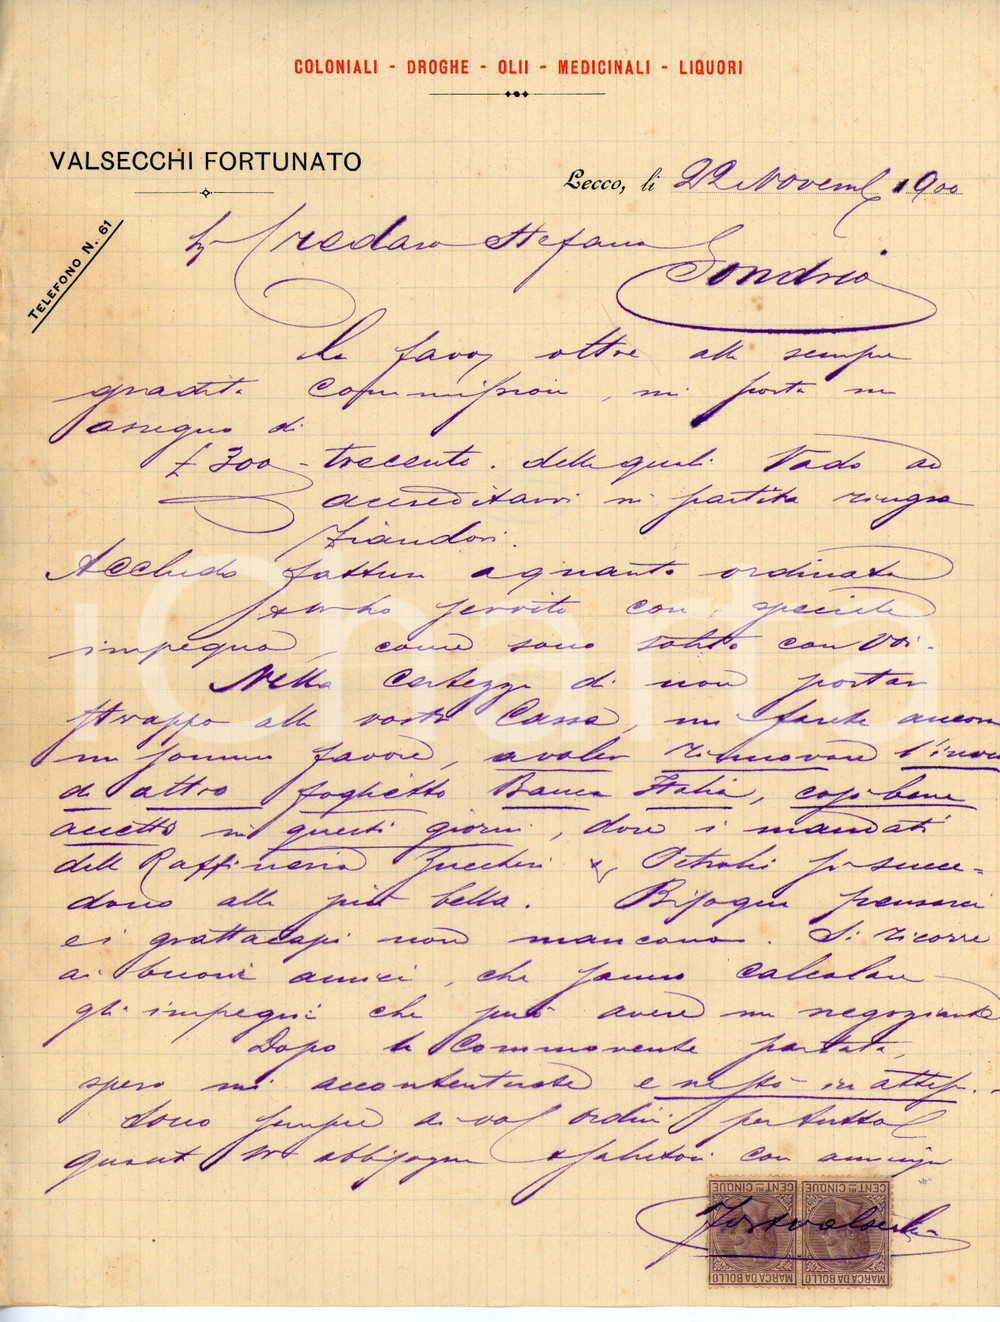 COLONIALI - DROGHE - OLII - MEDICINALI - LIQUORI
VALSECCHI FORTUNATO
TELEFONO N. 61
Lecco, li 22 Novemb 1900
Credaro Stefano
Sondrio
La favor oltre alla sempre
gradita commissione, mi porta un
assegno di
£ 300 - trecento. delle quali Vado ad
accreditarvi in partita ringra
ziandovi.
Accludo fattura a quanto ordinato
servito con speciale
impegno, come sono solito con Voi.
Nella certezza di non portar
strappo alla vostra Cassa, mi farete ancora
un sommo favore, a voler rinnovare l'invio
di altro foglietto Banca Italia, così bene
accetto in questi giorni, dove i mandati
della Raffineria Zuccheri e Petrolii si succe-
dono alla più bella. Bisogna pensarci
e i grattacapi non mancano. Si ricorre
ai buoni amici, che sanno calcolare
gli impegni che può avere un negoziante
Dopo la Commovente parlata,
spero mi accontenterete e resto in attesa.
dono sempre ai vos ordini per tutto
quant vi abbisogna e salutovi con
Fort Valsecchi
CENT. MI CINQUE
MARCA DA BOLLO
CENT. MI CINQUE
MARCA DA BOLLO
iCharta